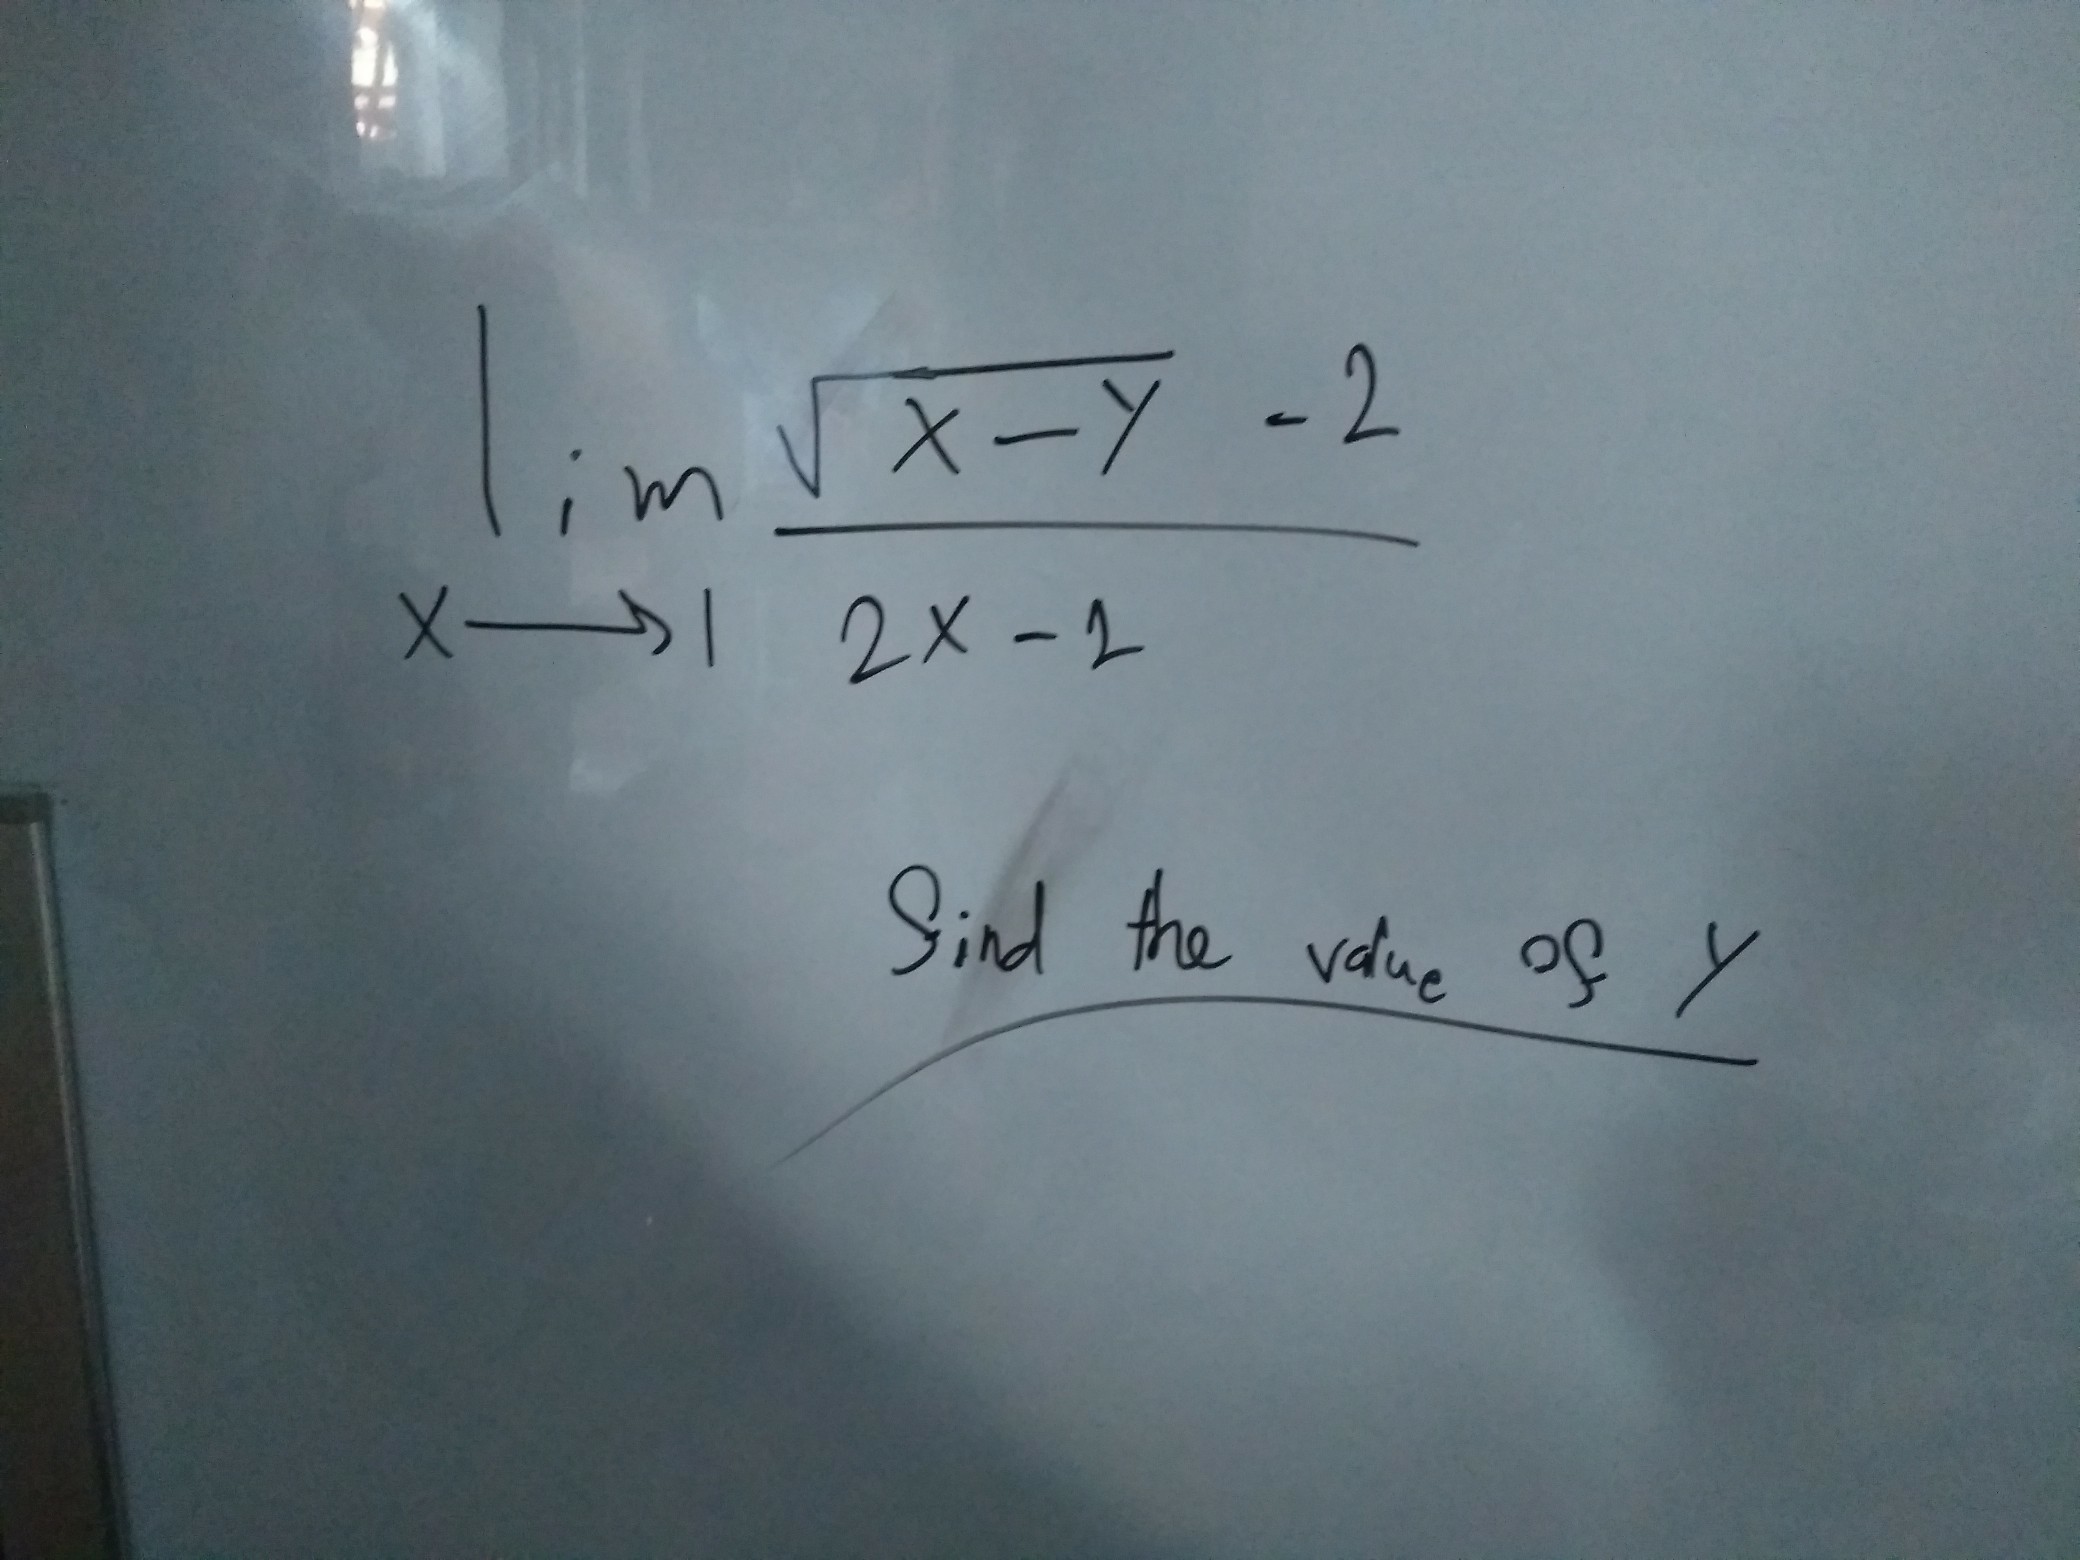 lim √x-y - 2
x→1 2x - 2
find the value of y